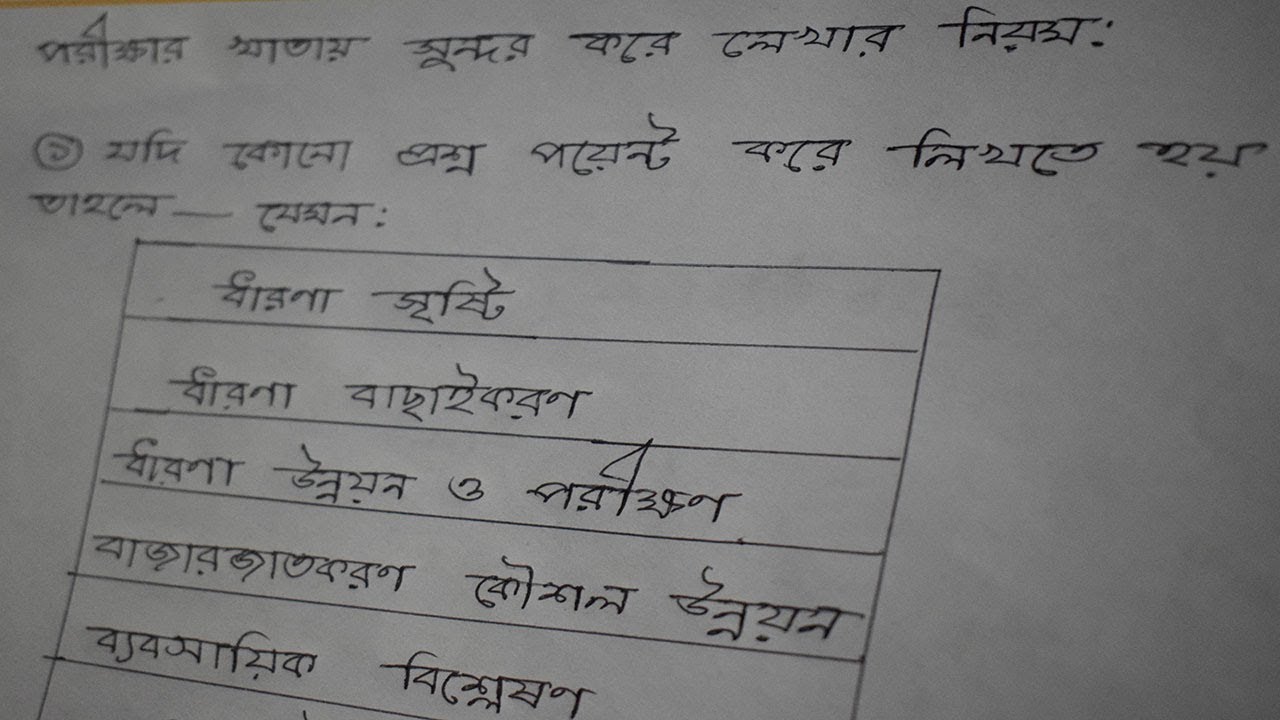 পরীক্ষার খাতায় সুন্দর করে লেখার নিয়ম:
১ যদি কোনো প্রশ্ন পয়েন্ট করে লিখতে হয়
তাহলে — যেমন:
ধারনা সৃষ্টি
ধারনা বাছাইকরণ
ধারনা উন্নয়ন ও পরীক্ষণ
বাজারজাতকরণ কৌশল উন্নয়ন
ব্যবসায়িক বিশ্লেষণ